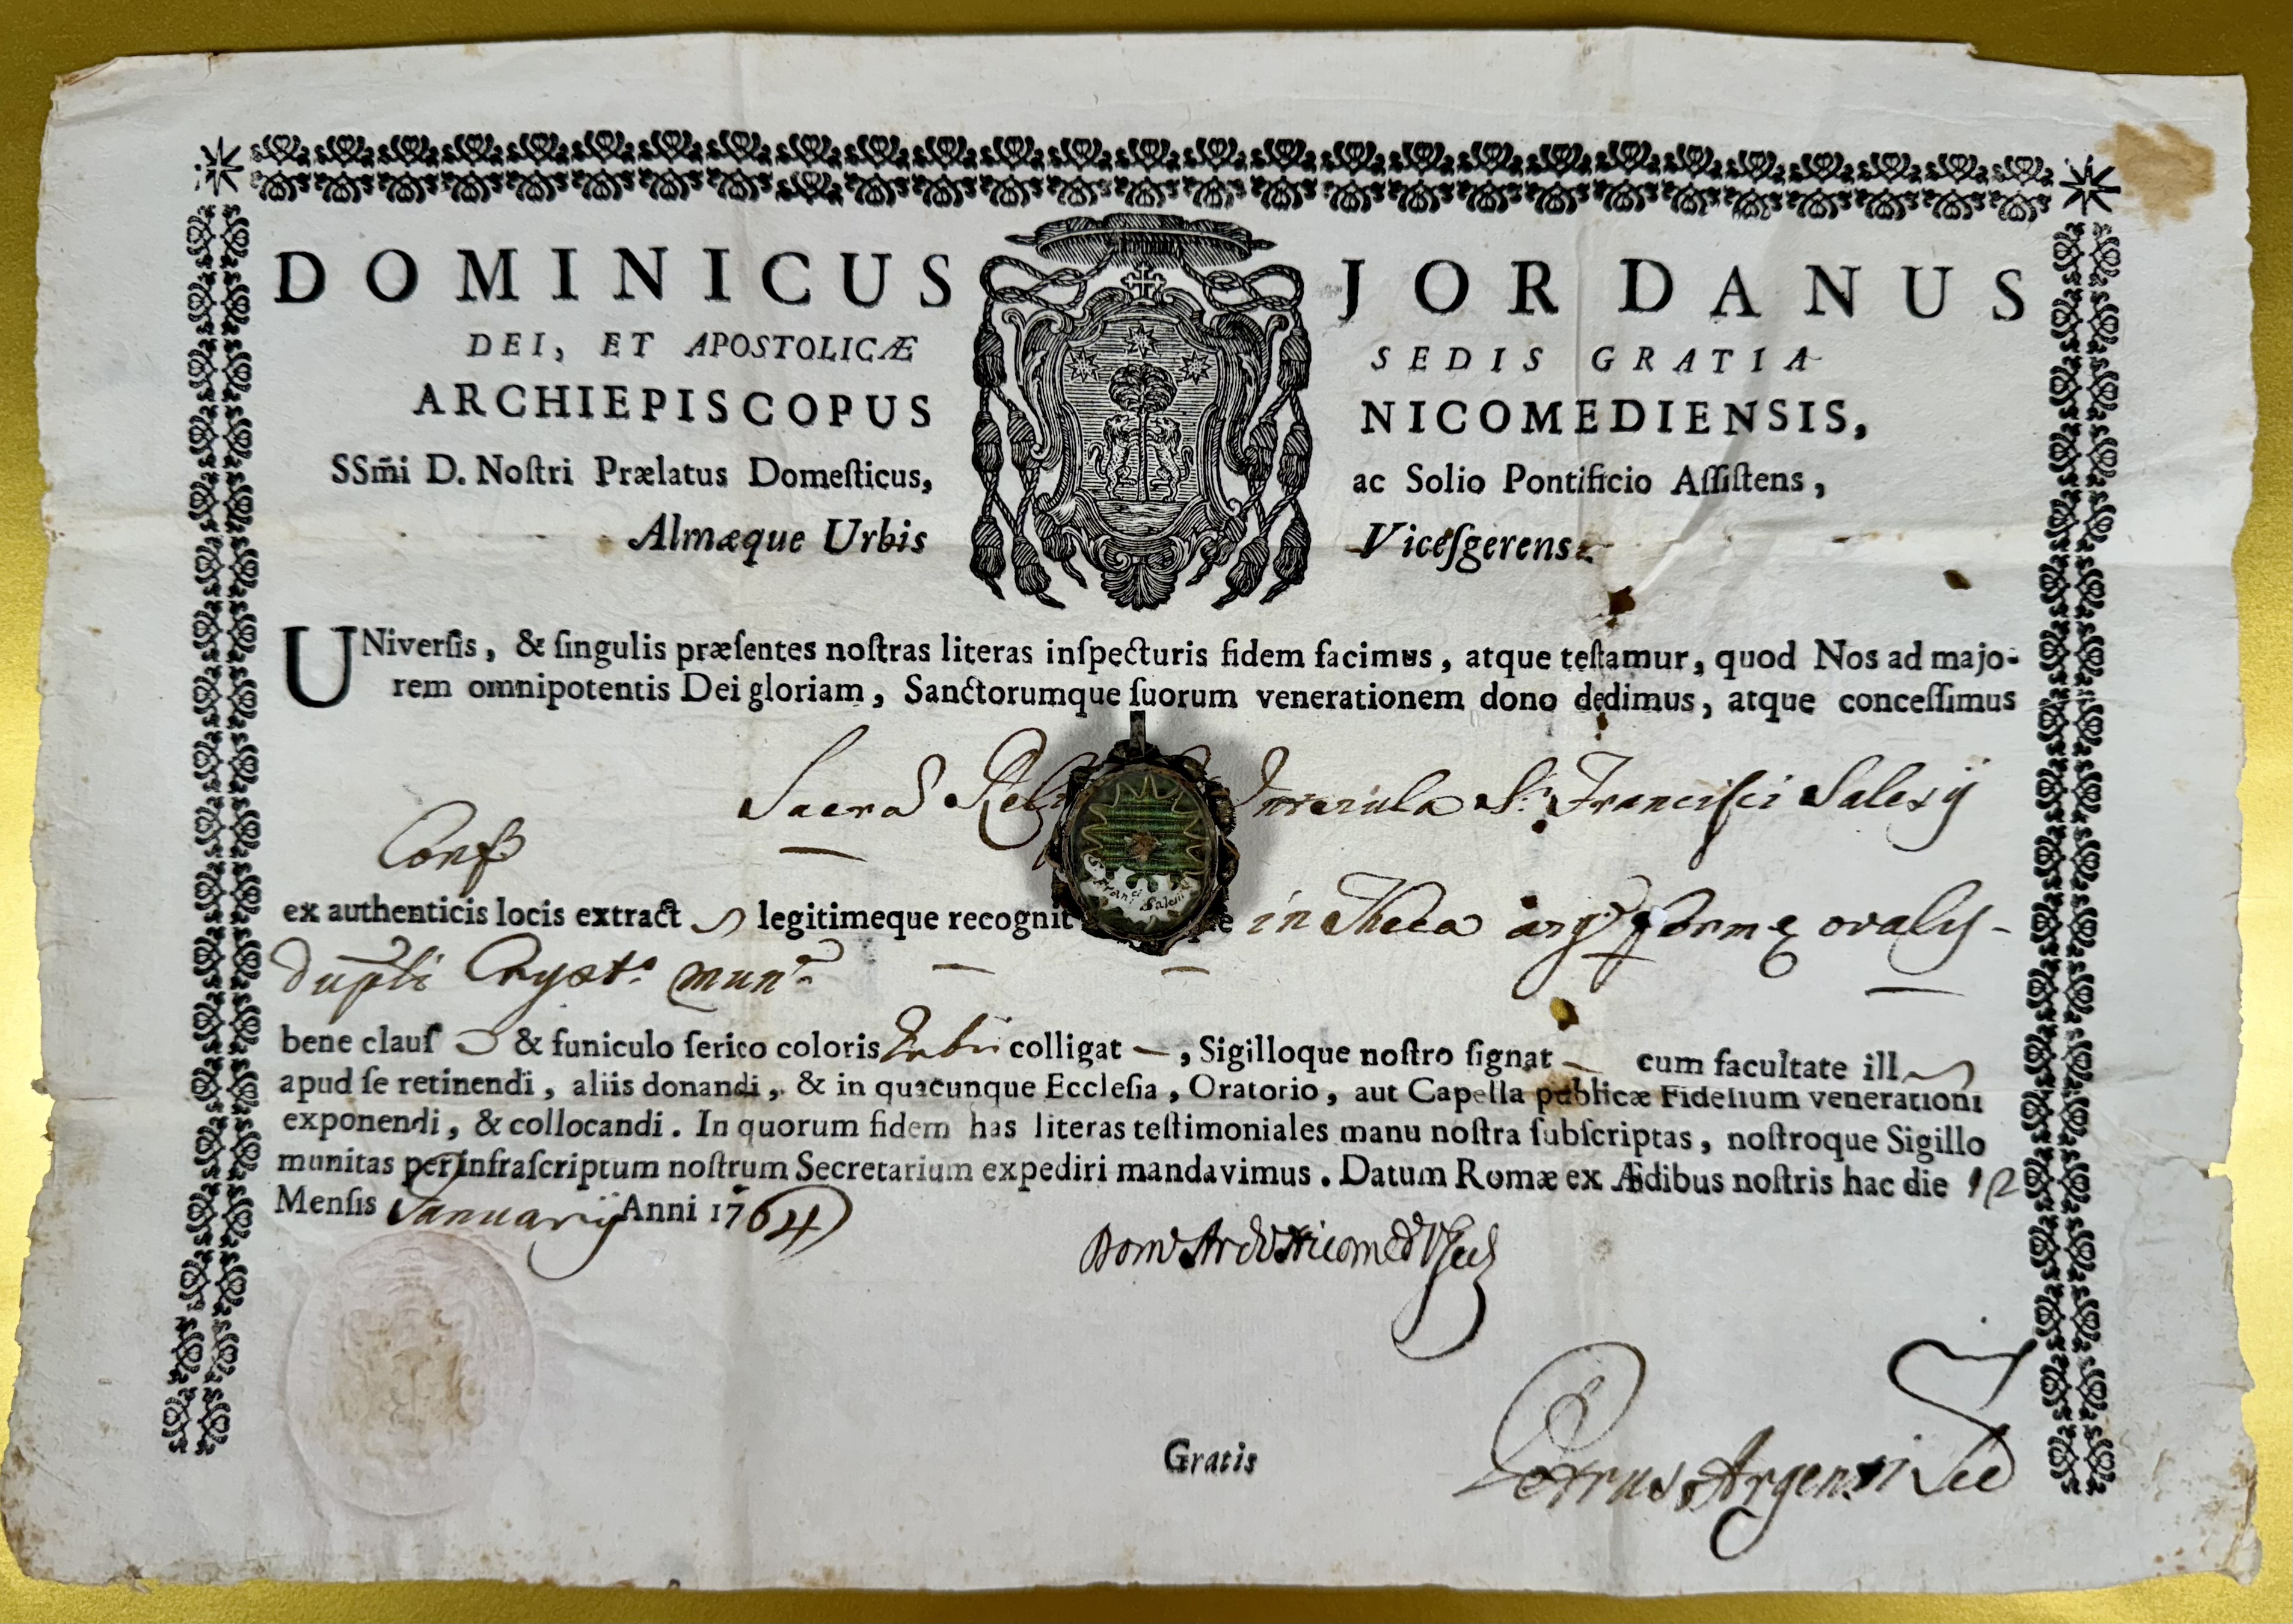 DOMINICUS JORDANUS
DEI, ET APOSTOLICÆ SEDIS GRATIA
ARCHIEPISCOPUS NICOMEDIENSIS,
SSm̄i D. Noſtri Prælatus Domeſticus, ac Solio Pontificio Aſſiſtens,
Almæque Urbis Viceſgerens
UNiverſis, & ſingulis præſentes noſtras literas inſpecturis fidem facimus, atque teſtamur, quod Nos ad majo-
rem omnipotentis Dei gloriam, Sanctorumque ſuorum venerationem dono dedimus, atque conceſſimus
Sacra S. Franciſci Saleſij
Conf
ex authenticis locis extract legitimeque recognit in Theca arg. formę ovalis
dupli Cryst. mun.
bene clauſ & funiculo ſerico coloris rubri colligat , Sigilloque noſtro ſignat cum facultate ill
apud ſe retinendi, aliis donandi, & in quacunque Eccleſia, Oratorio, aut Capella publicæ Fidelium venerationi
exponendi, & collocandi. In quorum fidem has literas teſtimoniales manu noſtra ſubſcriptas, noſtroque Sigillo
munitas per infraſcriptum noſtrum Secretarium expediri mandavimus. Datum Romæ ex Ædibus noſtris hac die 12
Menſis Januarij Anni 1764
S. Franci Salesii
Gratis
Petrus Argenti Sec